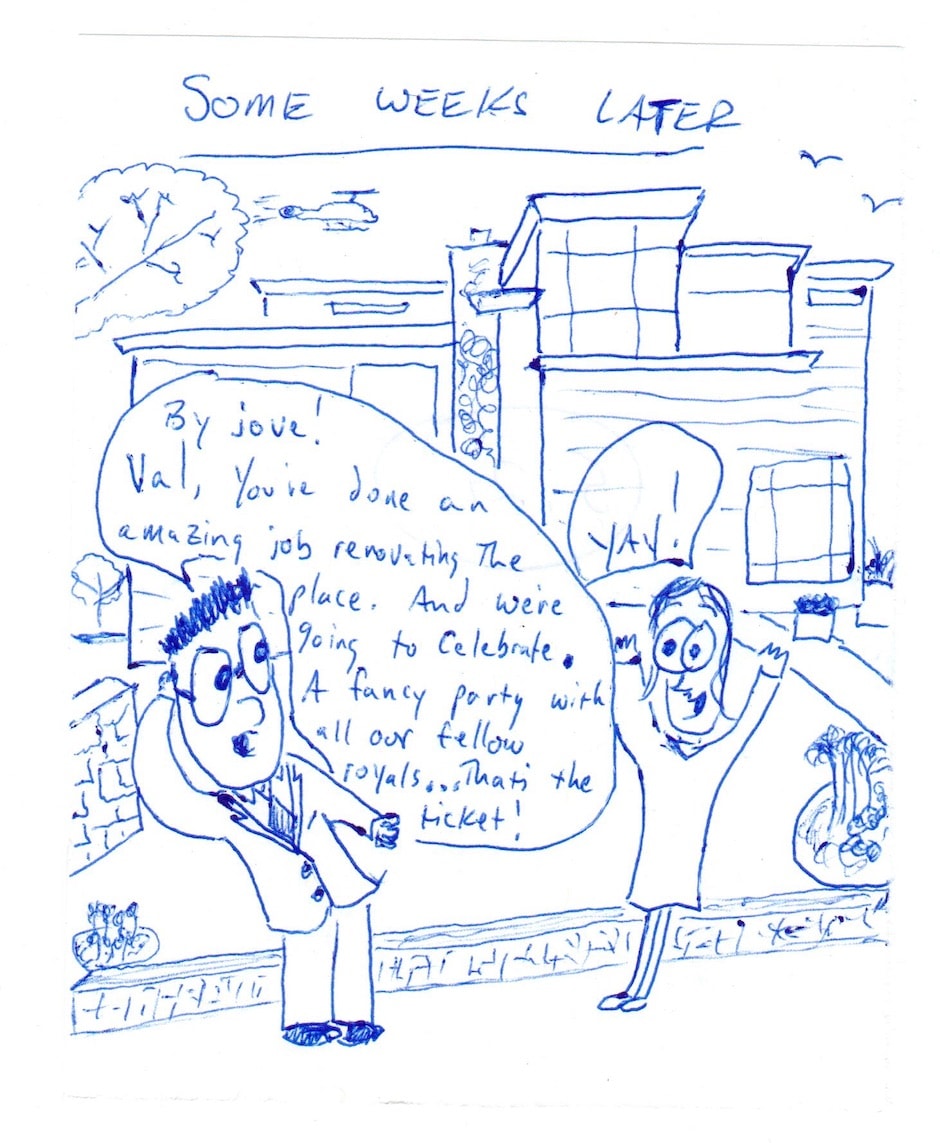 SOME WEEKS LATER
By jove!
Val, You've done an
amazing job renovating The
place. And we're
going to Celebrate.
A fancy party with
all our fellow
royals...That's the
ticket!
YAY!